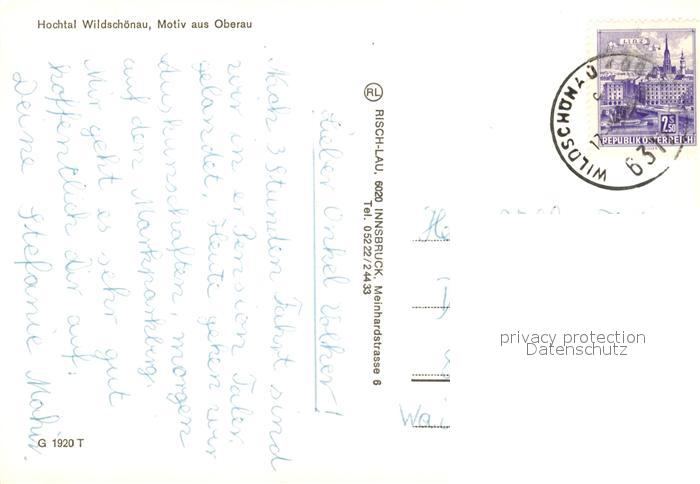 Hochtal Wildschönau, Motiv aus Oberau
Lieber Onkel Volker!
Nach 3 Stunden Fahrt sind
wir in er Pension Taler
gelandet, Heute gehen wir
Auskunschaften, morgen
auf den Markparkberg.
Mir geht es sehr gut
hoffentlich dir auf:
Deine Stefanie
G 1920 T
RL RISCH-LAU, 6020 INNSBRUCK, Meinhardstrasse 6
Tel. 05222/24433
LINZ
2.50
REPUBLIK ÖSTERREICH
WILDSCHÖNAU
631
Wai
privacy protection
Datenschutz